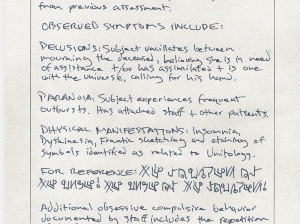 from previous assessment.
OBSERVED SYMPTOMS INCLUDE:
DELUSIONS: Subject vacillates between
mourning the deceased; believing she is in need
of assistance +/or has assimilated + is one
with the universe, calling for his hand.
PARANOIA: Subject experiences frequent
outbursts. Has attacked staff + other patients.
PHYSICAL MANIFESTATIONS: Insomnia,
Dyskinesia, Frantic sketching and etching of
symbols identified as related to Unitology.
FOR REFERENCE:
Additional obsessive compulsive behavior
documented by staff includes the repetition